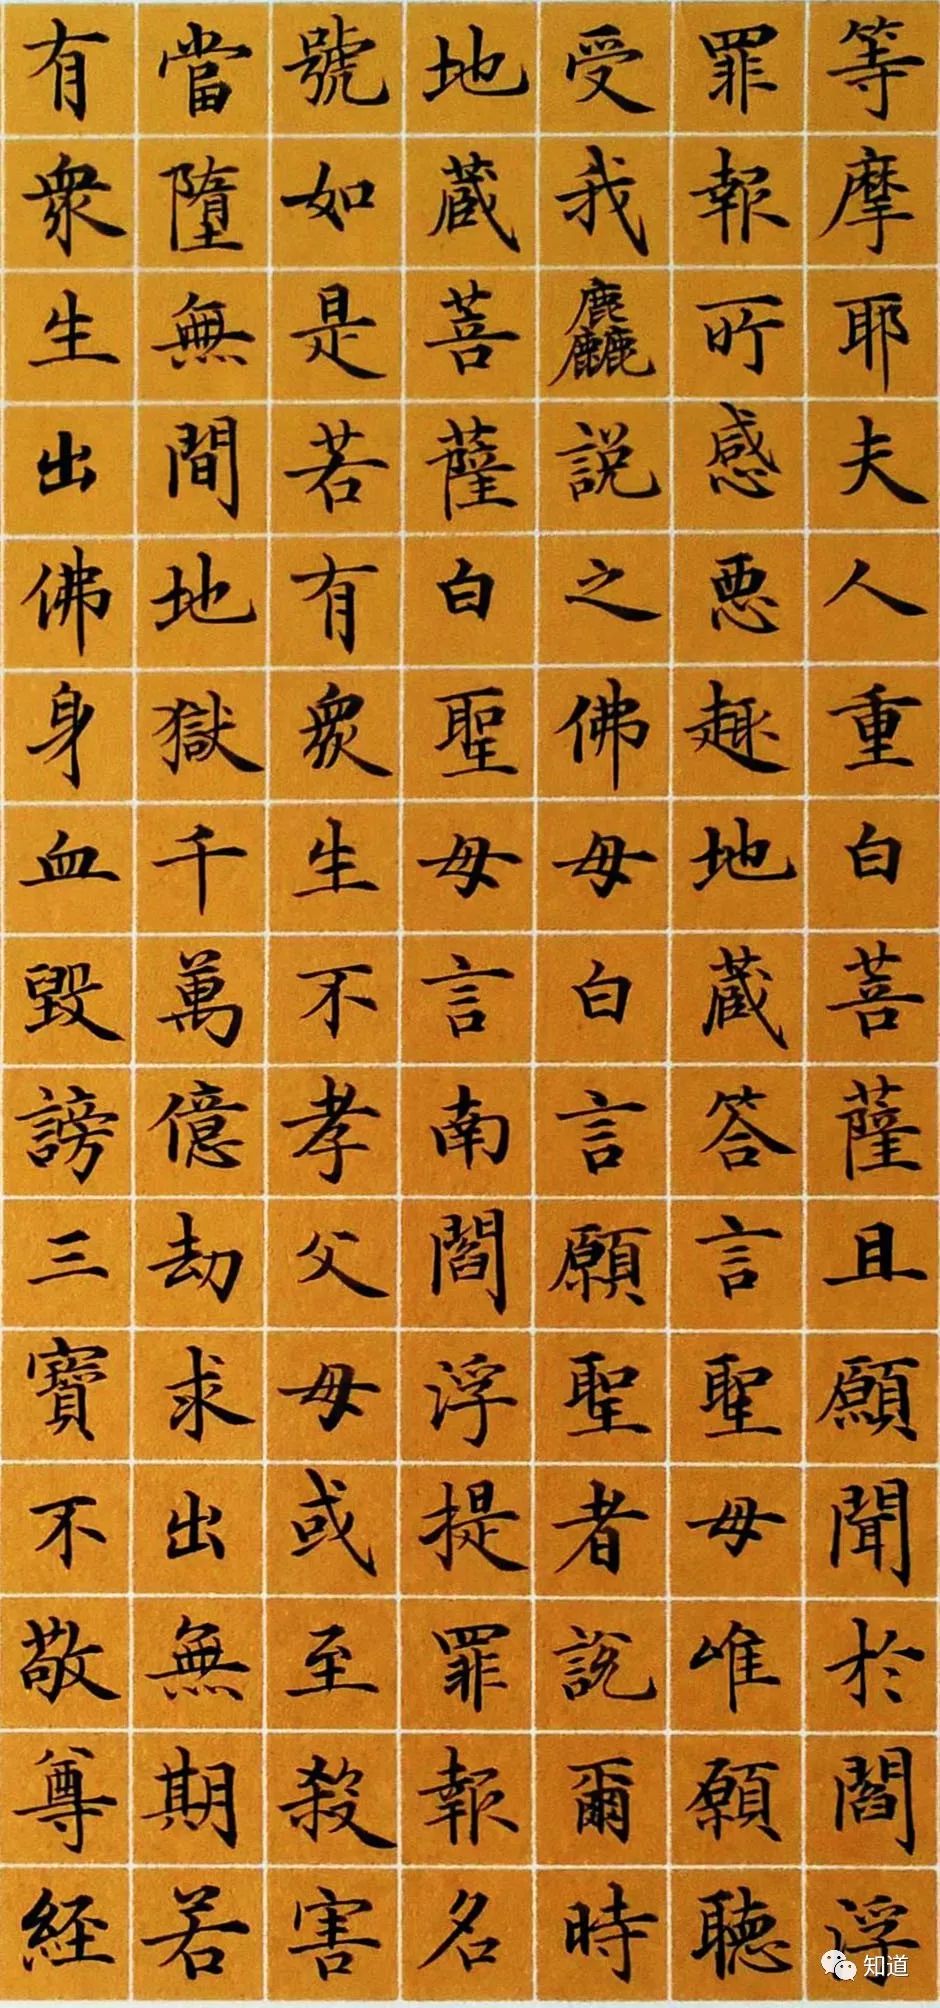 等摩耶夫人重白菩薩且願聞於閻浮
罪報所感惡趣地藏答言聖母唯願聽
受我麤說之佛母白言願聖者說爾時
地藏菩薩白聖母言南閻浮提罪報名
號如是若有衆生不孝父母或至殺害
當墮無間地獄千萬億劫求出無期若
有衆生出佛身血毀謗三寶不敬尊經
知道